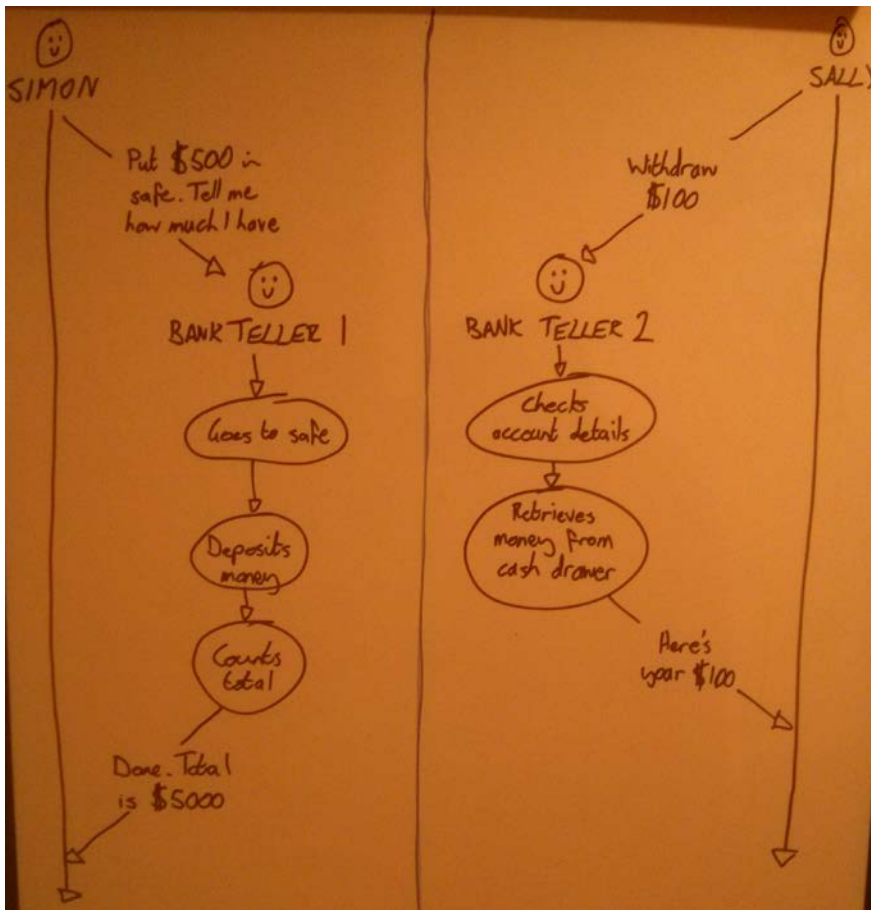 SIMON
Put $500 in
safe. Tell me
how much I have
BANK TELLER 1
Goes to safe
Deposits
money
Counts
total
Done. Total
is $5000
SALLY
Withdraw
$100
BANK TELLER 2
Checks
account details
Retrieves
money from
cash drawer
Here's
your $100